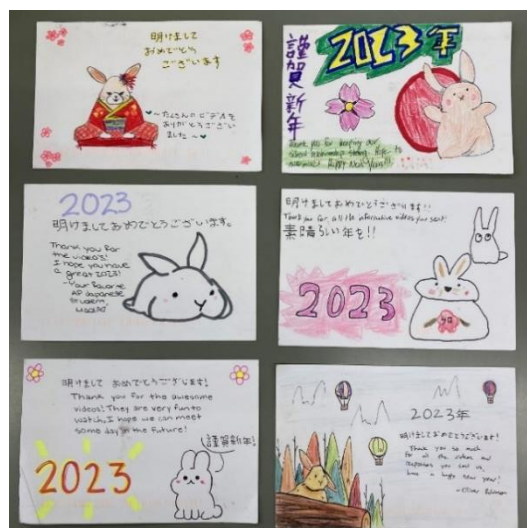 明けまして
おめでとう
ございます
～たくさんのビデオを
ありがとうござい
ました～
謹賀新年
2023年
Thank you for keeping our
school relationship strong. Hope to
Happy New Year!!!
2023
明けましておめでとうございます。
Thank you for
the videos!
I hope you have
a great 2023!
-Your favorite
AP Japanese
student,
明けましておめでとうございます!!
Thank you for all the informative videos you sent!
素晴らしい年を!!
2023
明けまして おめでとうございます!
Thank you for the awesome
videos! They are very fun to
watch, I hope we can meet
some day in the future!
謹賀新年!
2023
2023年
明けましておめでとうございます!
Thank you so much
for all the videos and
you send us,
have a happy new year!